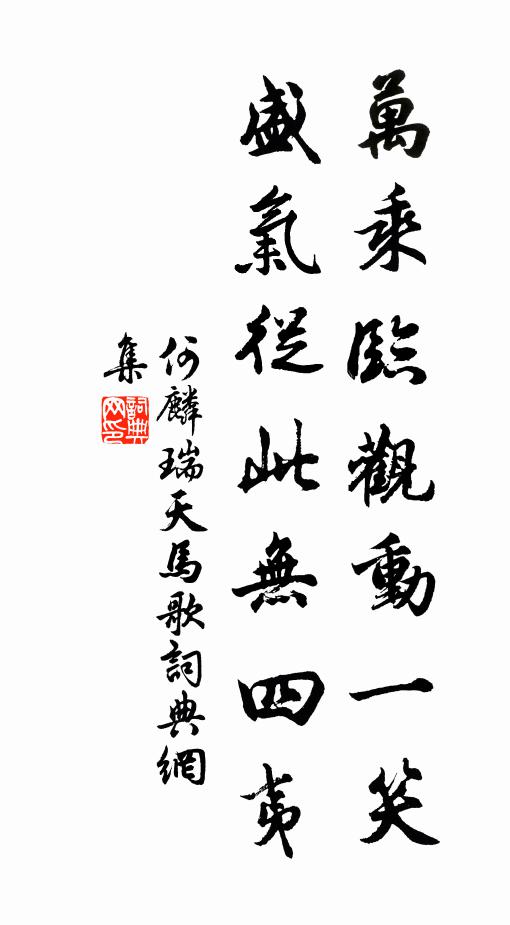 萬乘臨觀動一笑
盛氣從此無四夷
何麟瑞天馬歌詞典網
集
詞典網印